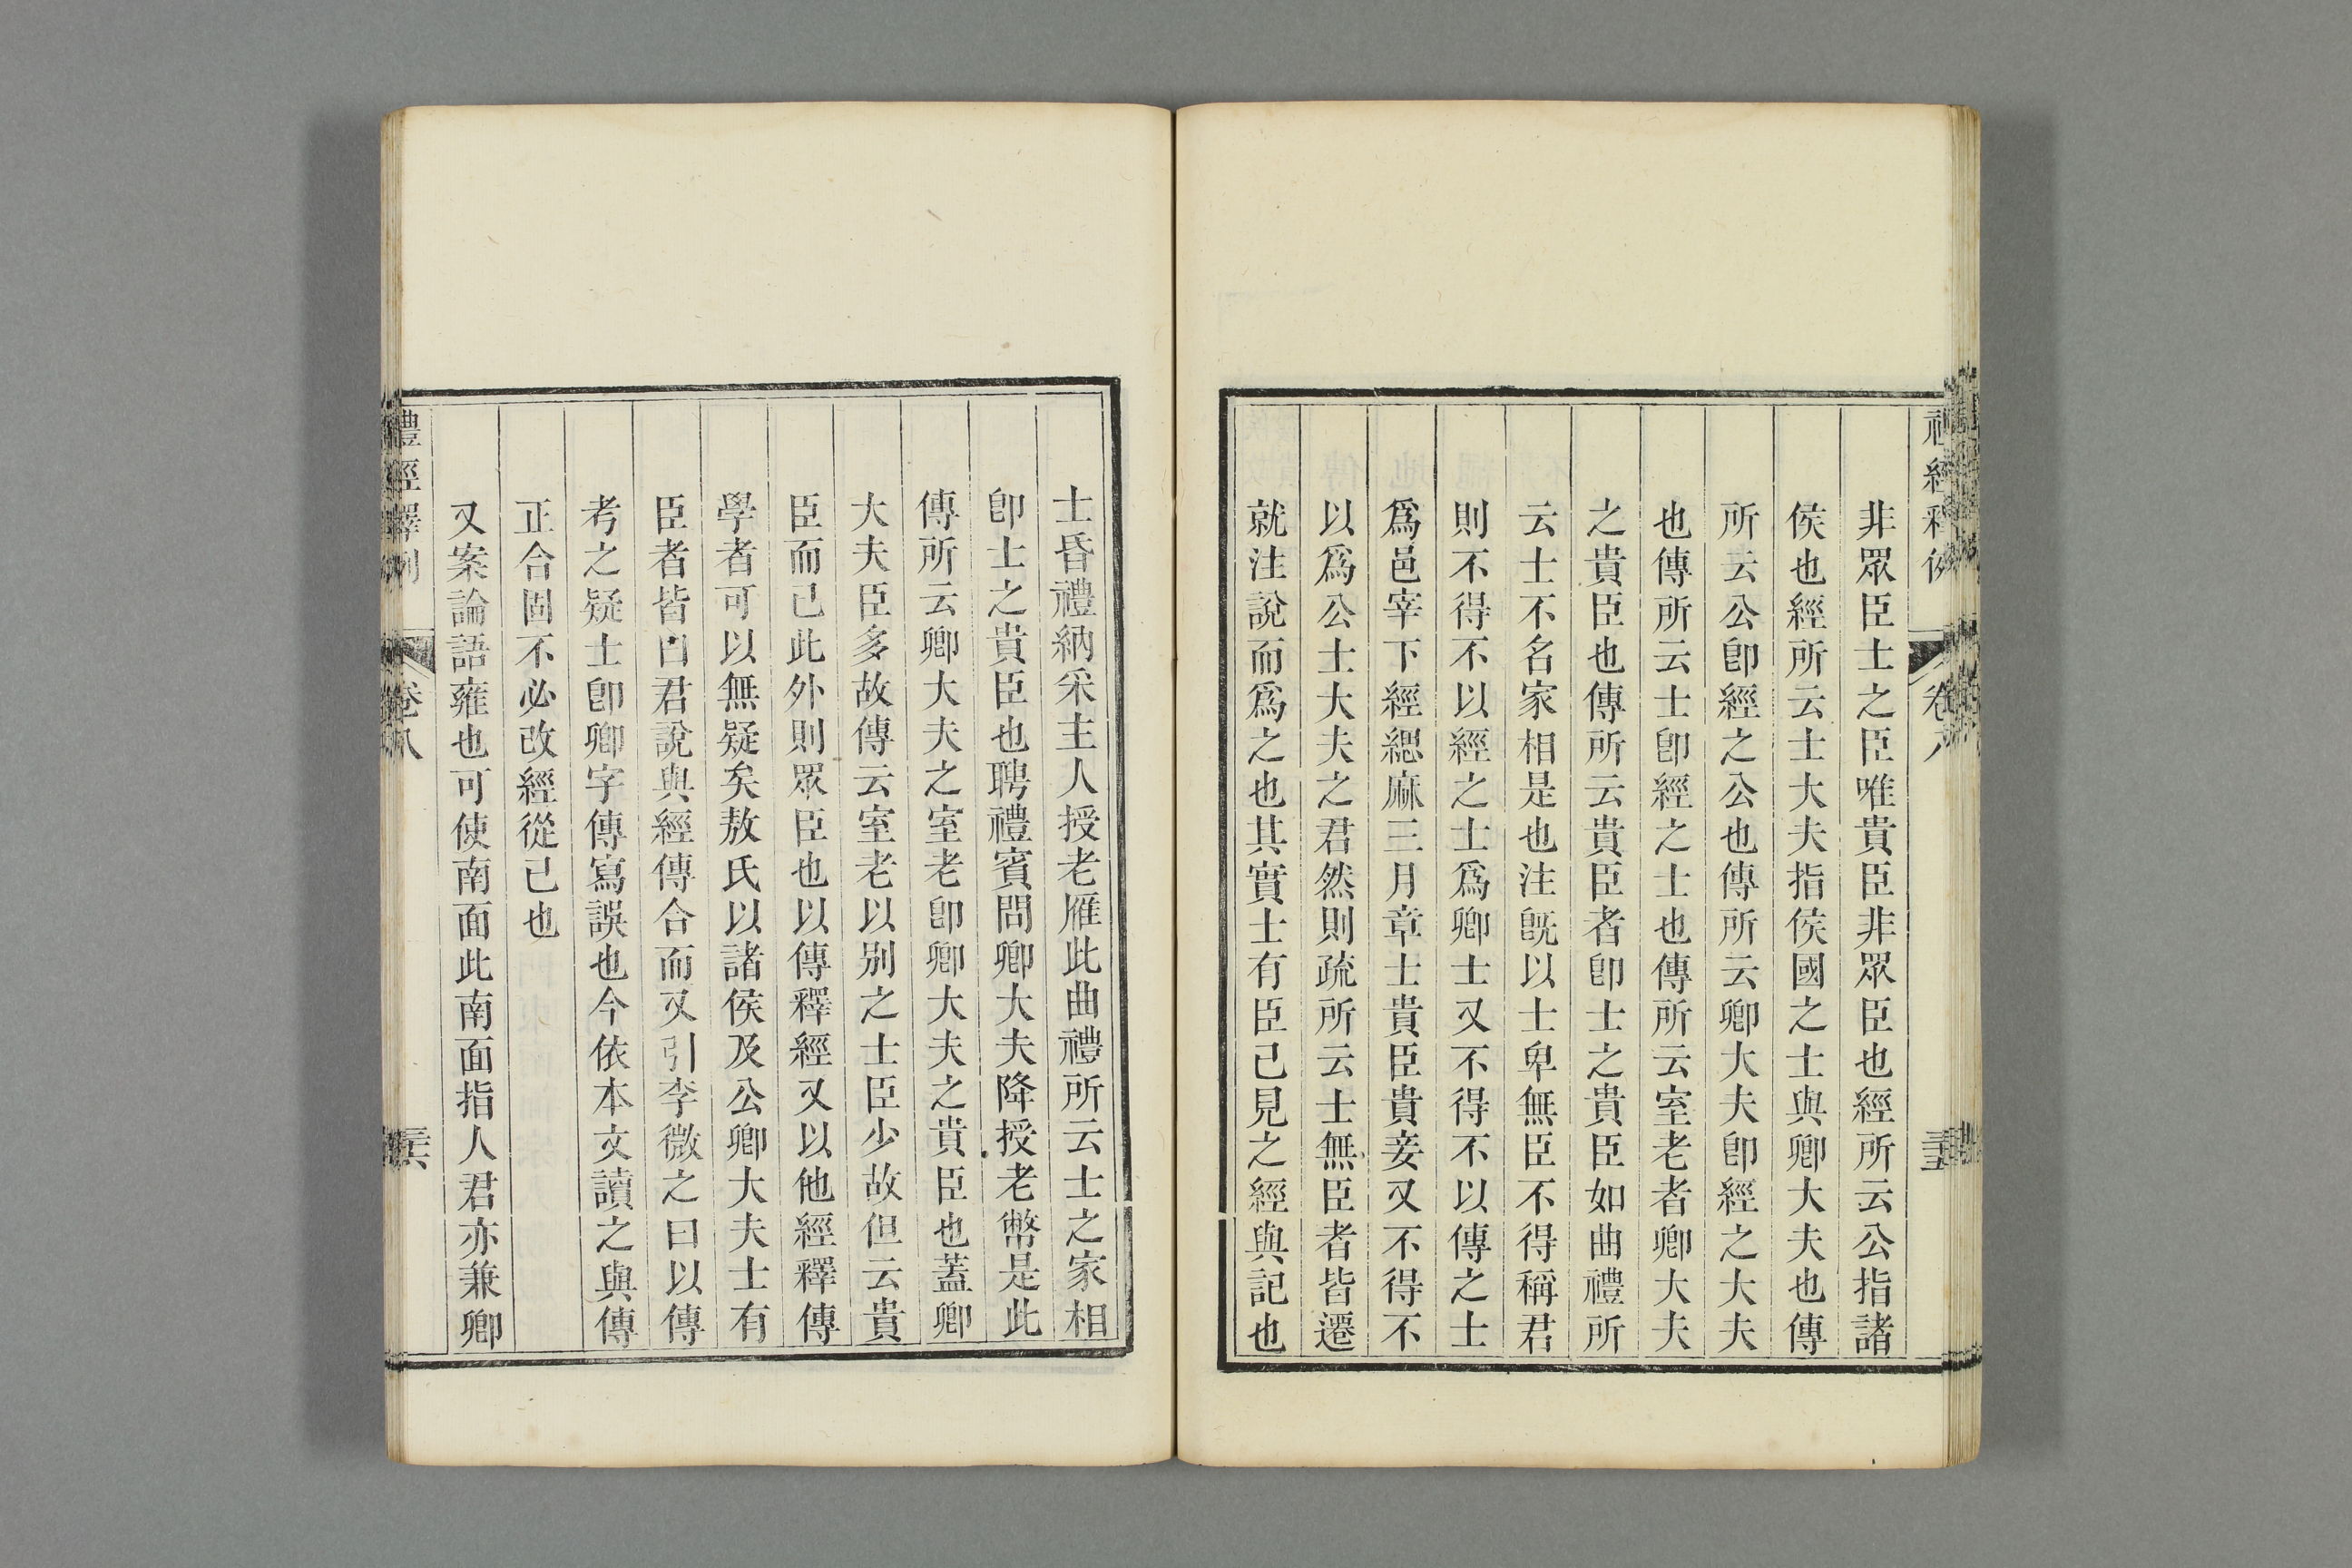 禮經釋例 卷八
非眾臣士之臣唯貴臣非眾臣也經所云公指諸
侯也經所云士大夫指侯國之士與卿大夫也傳
所云公卽經之公也傳所云卿大夫卽經之大夫
也傳所云士卽經之士也傳所云室老者卿大夫
之貴臣也傳所云貴臣者卽士之貴臣如曲禮所
云士不名家相是也注旣以士卑無臣不得稱君
則不得不以經之士爲卿士又不得不以傳之士
爲邑宰下經緦麻三月章士貴臣貴妾又不得不
以爲公士大夫之君然則疏所云士無臣者皆遷
就注說而爲之也其實士有臣已見之經與記也
士昏禮納采主人授老雁此曲禮所云士之家相
卽士之貴臣也聘禮賓問卿大夫降授老幣是此
傳所云卿大夫之室老卽卿大夫之貴臣也蓋卿
大夫臣多故傳云室老以別之士臣少故但云貴
臣而已此外則眾臣也以傳釋經又以他經釋傳
學者可以無疑矣敖氏以諸侯及公卿大夫士有
臣者皆曰君說與經傳合而又引李微之曰以傳
考之疑士卽卿字傳寫誤也今依本文讀之與傳
正合固不必改經從己也
又案論語雍也可使南面此南面指人君亦兼卿
禮經釋例 卷八